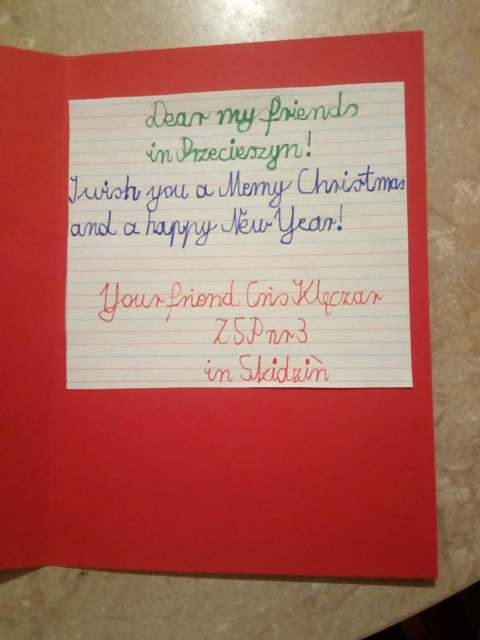 Dear my friends
in Przecieszyn!
I wish you a Merry Christmas
and a happy New Year!
Your friend Cris Klęczar
ZSP nr 3
in Skidziń